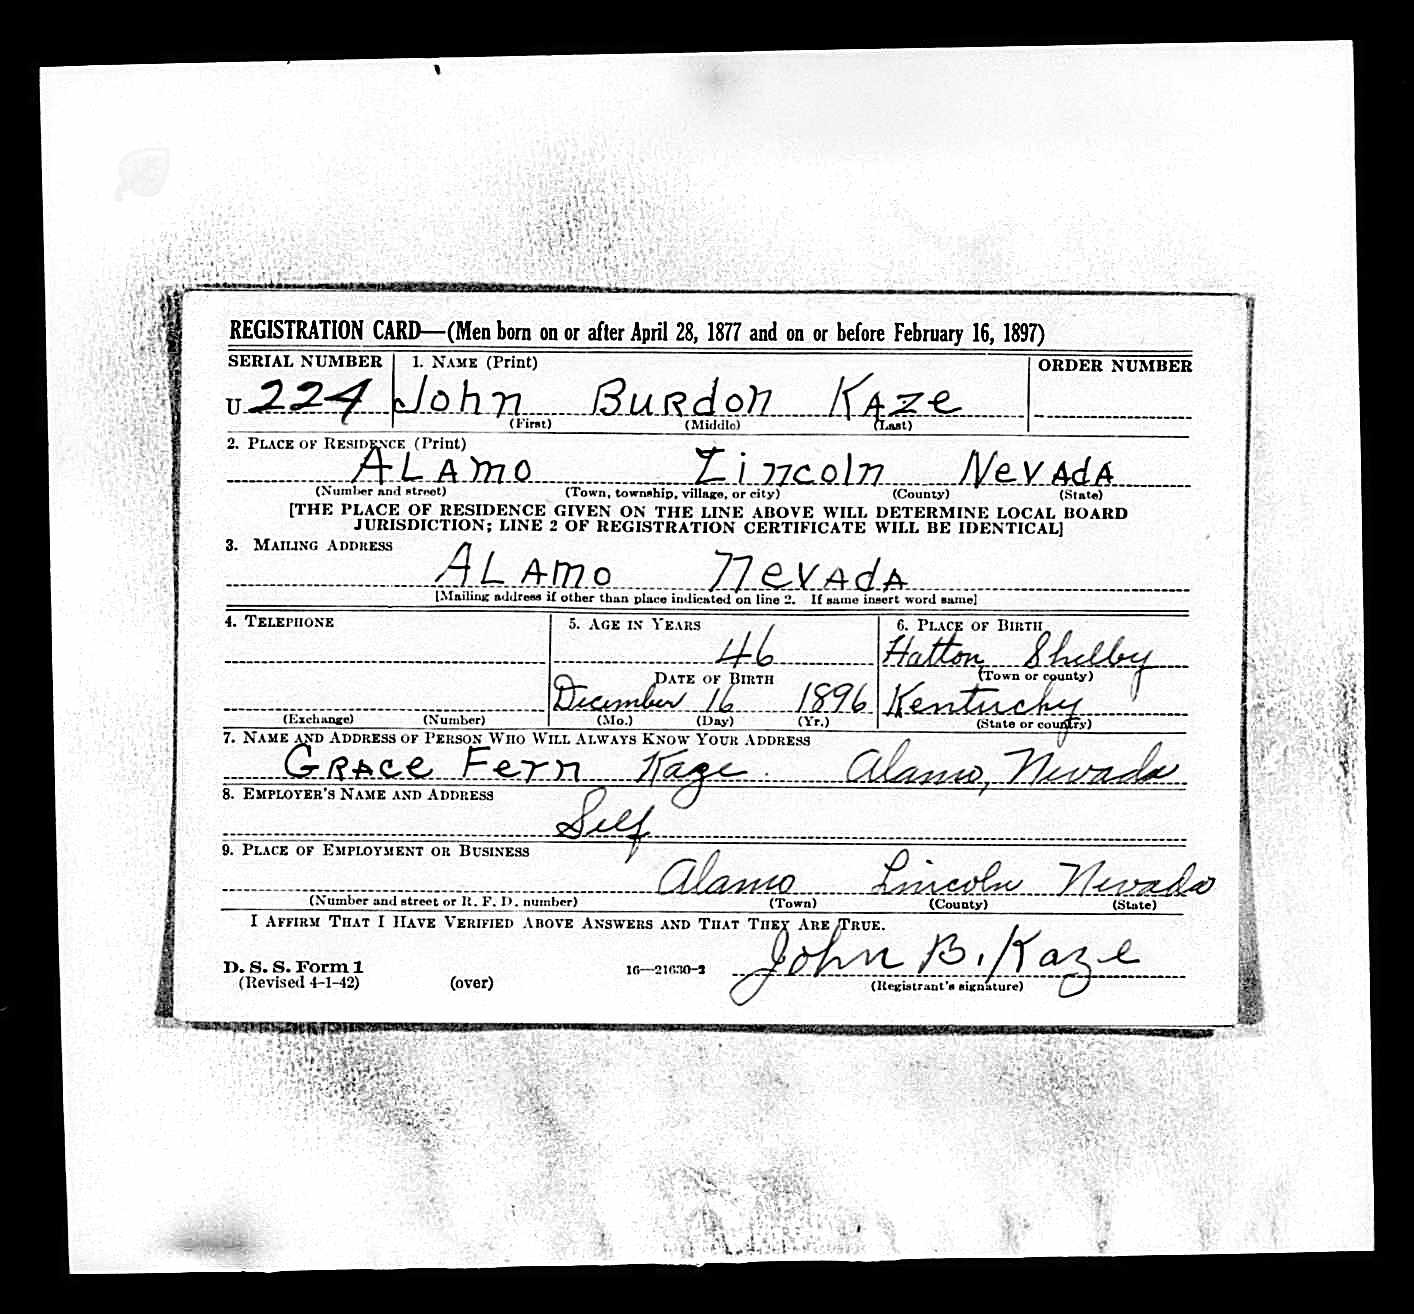 REGISTRATION CARD—(Men born on or after April 28, 1877 and on or before February 16, 1897)
SERIAL NUMBER 1. NAME (Print) ORDER NUMBER
U 224 John Burdon Kaze
(First) (Middle) (Last)
2. PLACE OF RESIDENCE (Print)
ALAmo Lincoln NevAdA
(Number and street) (Town, township, village, or city) (County) (State)
[THE PLACE OF RESIDENCE GIVEN ON THE LINE ABOVE WILL DETERMINE LOCAL BOARD
JURISDICTION; LINE 2 OF REGISTRATION CERTIFICATE WILL BE IDENTICAL]
3. MAILING ADDRESS
ALAmo NevAdA
[Mailing address if other than place indicated on line 2. If same insert word same]
4. TELEPHONE 5. AGE IN YEARS 6. PLACE OF BIRTH
46 Hatton Shelby
DATE OF BIRTH (Town or county)
December 16 1896 Kentucky
(Exchange) (Number) (Mo.) (Day) (Yr.) (State or country)
7. NAME AND ADDRESS OF PERSON WHO WILL ALWAYS KNOW YOUR ADDRESS
GRACe Fern Kaze. Alamo, Nevada
8. EMPLOYER'S NAME AND ADDRESS
Self
9. PLACE OF EMPLOYMENT OR BUSINESS
Alamo Lincoln Nevada
(Number and street or R. F. D. number) (Town) (County) (State)
I AFFIRM THAT I HAVE VERIFIED ABOVE ANSWERS AND THAT THEY ARE TRUE.
John B. Kaze
D. S. S. Form 1
(Revised 4-1-42) (over) 16—21630-2 (Registrant's signature)